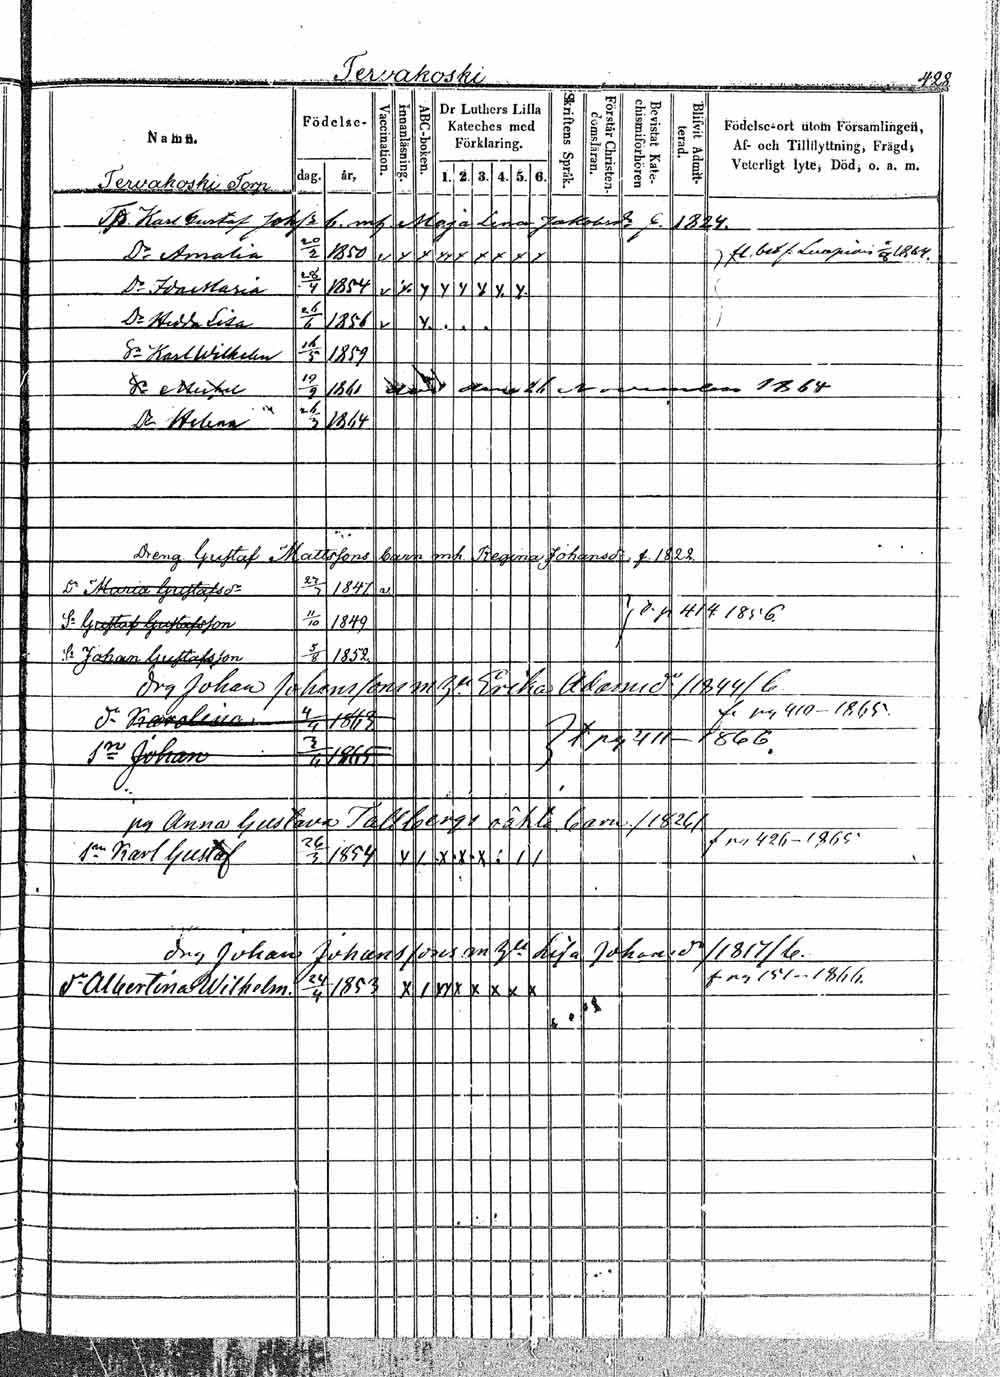 Tervakoski
428
Namn.
Födelse-
dag.
år,
Vaccination.
Innanläsning.
ABC-boken.
Dr Luthers Lilla
Kateches med
Förklaring.
1. 2. 3. 4. 5. 6.
Skriftens Språk.
Förstår Christen-
domsläran.
Bevistat Kate-
chismiförhören
Blifvit Admit-
terad.
Födelse-ort utom Församlingen,
Af- och Tillflyttning, Frägd,
Veterligt lyte, Död, o. a. m.
Tervakoski Torp
Karl Gustaf b. Maja Lena 1824.
Dr Amalia 20/2 1850 v x x xx x x x x x fl. 1864.
Dr Ida Maria 28/4 1854 v x y y y x x x.
Dr Hedda Lisa 26/6 1856 v x . . .
Sn Karl Wilhelm 16/5 1859
19/9 1861 den 26 November 1864
Dr Helena 26/3 1864
Dreng Gustaf Mattssons barn mh. Regina Johansdr, f. 1822
Dr Maria Gustafsdr 27/7 1847
Sn Gustaf Gustafsson 11/10 1849 414 1856.
Sn Johan Gustafsson 5/8 1852.
drg Johan Johanssons m Erika Adamsdr /1844/ b
dr Karolina 4/4 1863 fr pg 410-1865.
sn Johan 1865 t pg 411-1866.
pg Anna Gustava Tallbergs oäkta barn /1826/
sn Karl Gustaf 26/3 1854 x 1 x x x : 1 1 f pg 426-1865
drg Johan Johanssons m Lisa Johansdr /1817/ b.
dr Albertina Wilhelm. 24/4 1853 x 1 xx x x x x x f pg 151-1866.